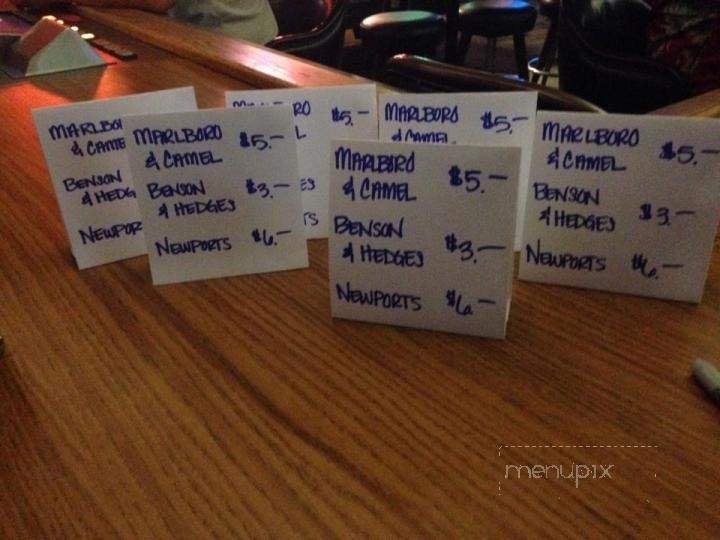 MARLBO
& CAME
BENSON
& HEDG
NEWPOR
MARLBORO
& CAMEL $5.-
BENSON
& HEDGES $3.-
NEWPORTS $6.-
RO $5.-
L
ES
TS
MARLBORO $5.-
& CAMEL
MARLBORO
& CAMEL $5.-
BENSON
& HEDGES $3.-
NEWPORTS $6.-
MARLBORO
& CAMEL $5.-
BENSON
& HEDGES $3.-
NEWPORTS $6.-
menupix